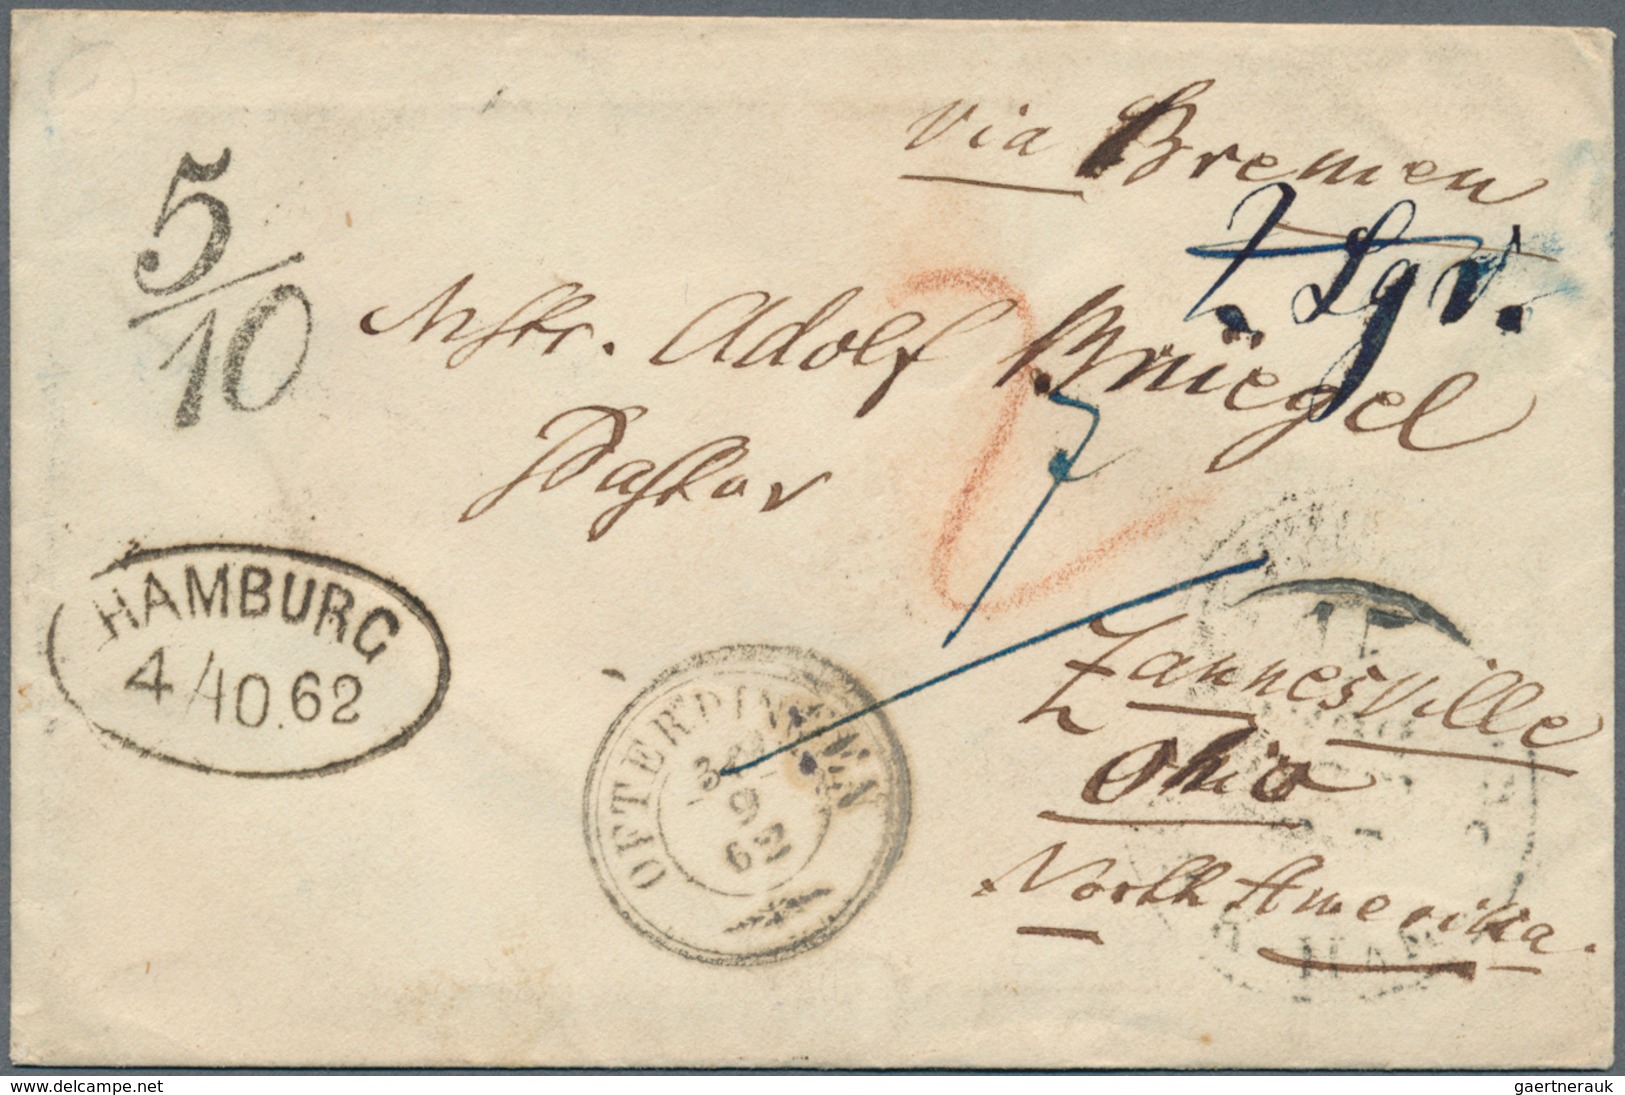 via Bremen
2 Sgr.
5/10
Mstr. Adolf Brüegel
Pastor
HAMBURG
4/10.62
OFTERDINGEN
9
62
Zannesville
Ohio
North Amerika.
www.delcampe.net
gaertnerauk